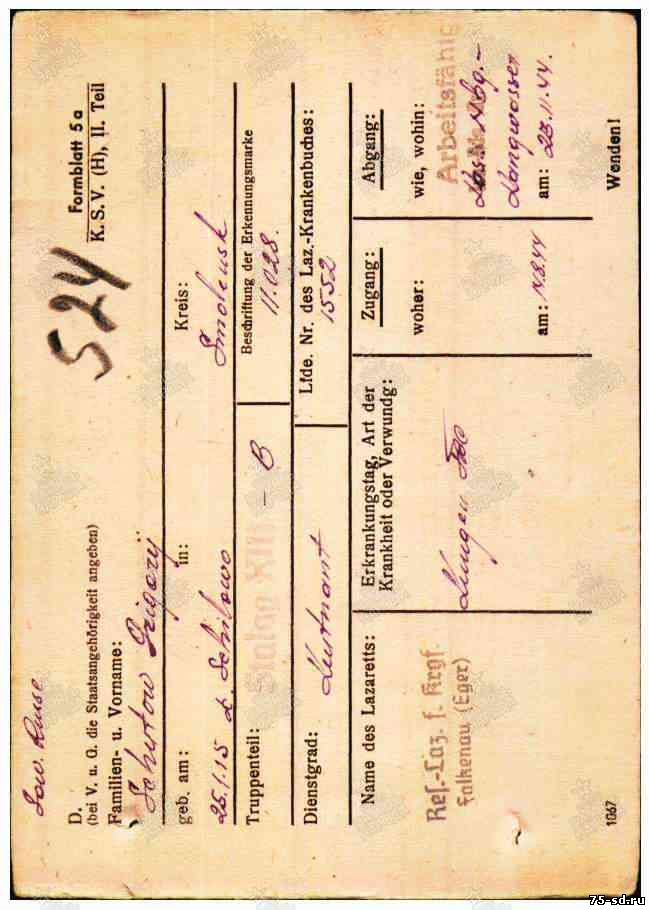 Sow. Russe
524
Formblatt 5 a
K. S. V. (H), II. Teil
D.
(bei V. u. G. die Staatsangehörigkeit angeben)
Familien- u. Vorname:
Grigorij
geb. am: in: Kreis:
25.1.15 Smolensk
Truppenteil: Stalag XIII - B
Beschriftung der Erkennungsmarke
11.028.
Dienstgrad: Leutnant
Lfde. Nr. des Laz.-Krankenbuches:
1552
Name des Lazaretts:
Res.-Laz. f. Krgf.
Falkenau (Eger)
Erkrankungstag, Art der
Krankheit oder Verwundg:
Lungen Tbc
Zugang:
woher:
am:
Abgang:
wie, wohin:
Arbeitsfähig
Nbg.-
Langwasser
am: 23.11.44.
Wenden!
1067
75-sd.ru